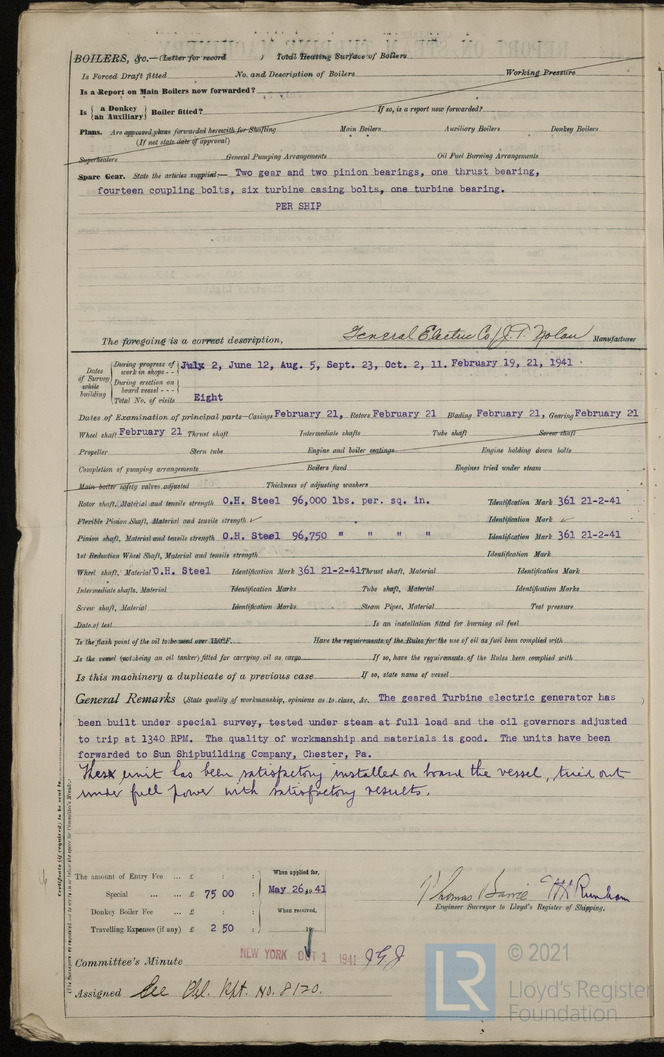 BOILERS, &c.—(Letter for record ) Total Heating Surface of Boilers
Is Forced Draft fitted No. and Description of Boilers Working Pressure
Is a Report on Main Boilers now forwarded?
Is { a Donkey / an Auxiliary } Boiler fitted? If so, is a report now forwarded?
Plans. Are approved plans forwarded herewith for Shafting Main Boilers Auxiliary Boilers Donkey Boilers
(If not state date of approval)
Superheaters General Pumping Arrangements Oil Fuel Burning Arrangements
Spare Gear. State the articles supplied:— Two gear and two pinion bearings, one thrust bearing,
fourteen coupling bolts, six turbine casing bolts, one turbine bearing.
PER SHIP
The foregoing is a correct description, General Electric Co / J. T. Nolan Manufacturer
Dates of Survey while building
During progress of work in shops - - July 2, June 12, Aug. 5, Sept. 23, Oct. 2, 11. February 19, 21, 1941
During erection on board vessel - - -
Total No. of visits Eight
Dates of Examination of principal parts—Casings February 21, Rotors February 21 Blading February 21, Gearing February 21
Wheel shaft February 21 Thrust shaft Intermediate shafts Tube shaft Screw shaft
Propeller Stern tube Engine and boiler seatings Engine holding down bolts
Completion of pumping arrangements Boilers fixed Engines tried under steam
Main boiler safety valves adjusted Thickness of adjusting washers
Rotor shaft, Material and tensile strength O.H. Steel 96,000 lbs. per. sq. in. Identification Mark 361 21-2-41
Flexible Pinion Shaft, Material and tensile strength ✓ Identification Mark ✓
Pinion shaft, Material and tensile strength O.H. Steel 96,750 " " " " Identification Mark 361 21-2-41
1st Reduction Wheel Shaft, Material and tensile strength Identification Mark
Wheel shaft, Material O.H. Steel Identification Mark 361 21-2-41 Thrust shaft, Material Identification Mark
Intermediate shafts, Material Identification Marks Tube shaft, Material Identification Marks
Screw shaft, Material Identification Marks Steam Pipes, Material Test pressure
Date of test Is an installation fitted for burning oil fuel
Is the flash point of the oil to be used over 150°F. Have the requirements of the Rules for the use of oil as fuel been complied with
Is the vessel (not being an oil tanker) fitted for carrying oil as cargo If so, have the requirements of the Rules been complied with
Is this machinery a duplicate of a previous case If so, state name of vessel
General Remarks (State quality of workmanship, opinions as to class, &c. The geared Turbine electric generator has
been built under special survey, tested under steam at full load and the oil governors adjusted
to trip at 1340 RPM. The quality of workmanship and materials is good. The units have been
forwarded to Sun Shipbuilding Company, Chester, Pa.
These unit has been satisfactory installed on board the vessel, tried out
under full power with satisfactory results.
The amount of Entry Fee ... £ : : When applied for,
Special ... ... £ 75 00 : May 26, 19 41
Donkey Boiler Fee ... £ : : When received,
Travelling Expenses (if any) £ 2 50 : 19
Thomas Barrie
Engineer Surveyor to Lloyd's Register of Shipping.
Committee's Minute NEW YORK OCT 1 1941
Assigned See Phl. Rpt. No. 8120.
© 2021
LR Lloyd's Register
Foundation